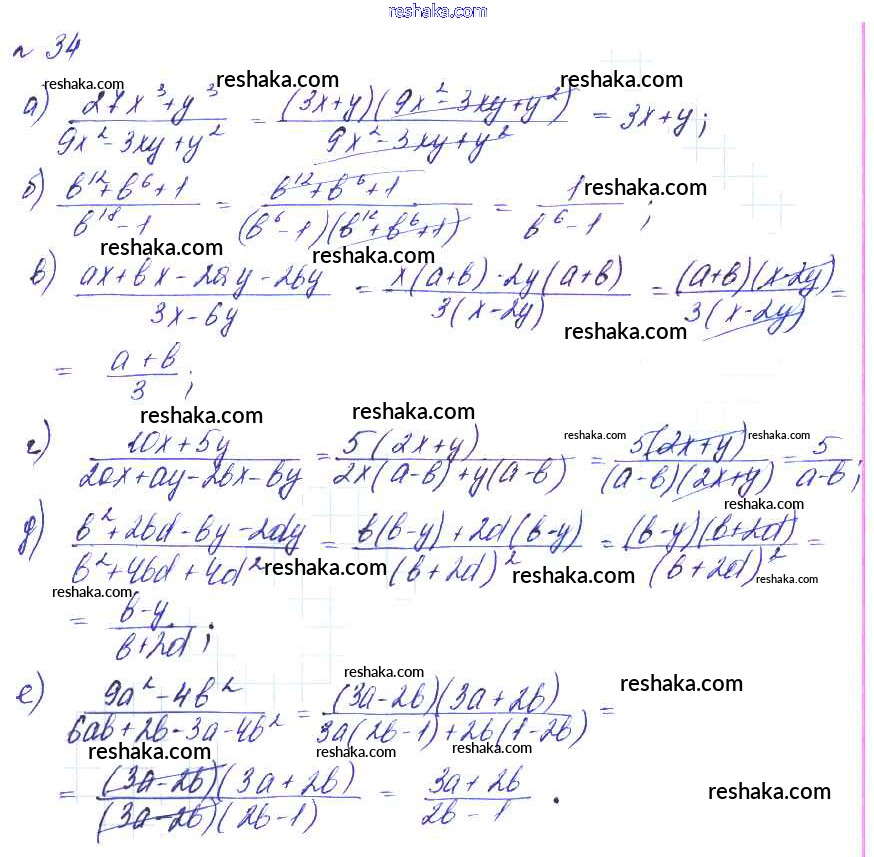 reshaka.com
№ 34
reshaka.com reshaka.com reshaka.com
а) (27x³+y³)/(9x²-3xy+y²) = ((3x+y)(9x²-3xy+y²))/(9x²-3xy+y²) = 3x+y;
б) (b¹²+b⁶+1)/(b¹⁸-1) = (b¹²+b⁶+1)/((b⁶-1)(b¹²+b⁶+1)) = 1/(b⁶-1);
reshaka.com reshaka.com
в) (ax+bx-2ay-2by)/(3x-6y) = (x(a+b)-2y(a+b))/(3(x-2y)) = ((a+b)(x-2y))/(3(x-2y)) =
reshaka.com
= (a+b)/3;
reshaka.com reshaka.com
г) (10x+5y)/(2ax+ay-2bx-by) = (5(2x+y))/(2x(a-b)+y(a-b)) = (5(2x+y))/((a-b)(2x+y)) = 5/(a-b);
reshaka.com reshaka.com
reshaka.com
д) (b²+2bd-by-2dy)/(b²+4bd+4d²) = (b(b-y)+2d(b-y))/((b+2d)²) = ((b-y)(b+2d))/((b+2d)²) =
reshaka.com reshaka.com reshaka.com
reshaka.com
= (b-y)/(b+2d);
reshaka.com reshaka.com
е) (9a²-4b²)/(6ab+2b-3a-4b²) = ((3a-2b)(3a+2b))/(3a(2b-1)+2b(1-2b)) =
reshaka.com reshaka.com reshaka.com
= ((3a-2b)(3a+2b))/((3a-2b)(2b-1)) = (3a+2b)/(2b-1).
reshaka.com